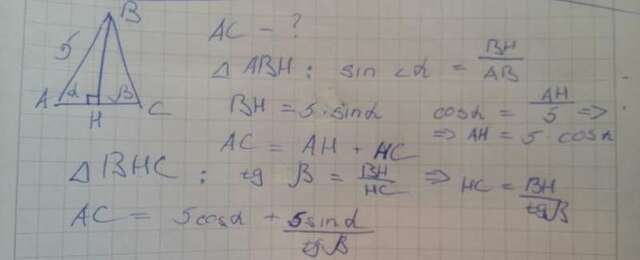 B
5
A α H β C
AC - ?
△ ABH : sin <α = BH/AB
BH = 5·sinα cosα = AH/5 =>
=> AH = 5·cosα
AC = AH + HC
△ BHC : tg β = BH/HC => HC = BH/tgβ
AC = 5cosα + 5sinα/tgβ